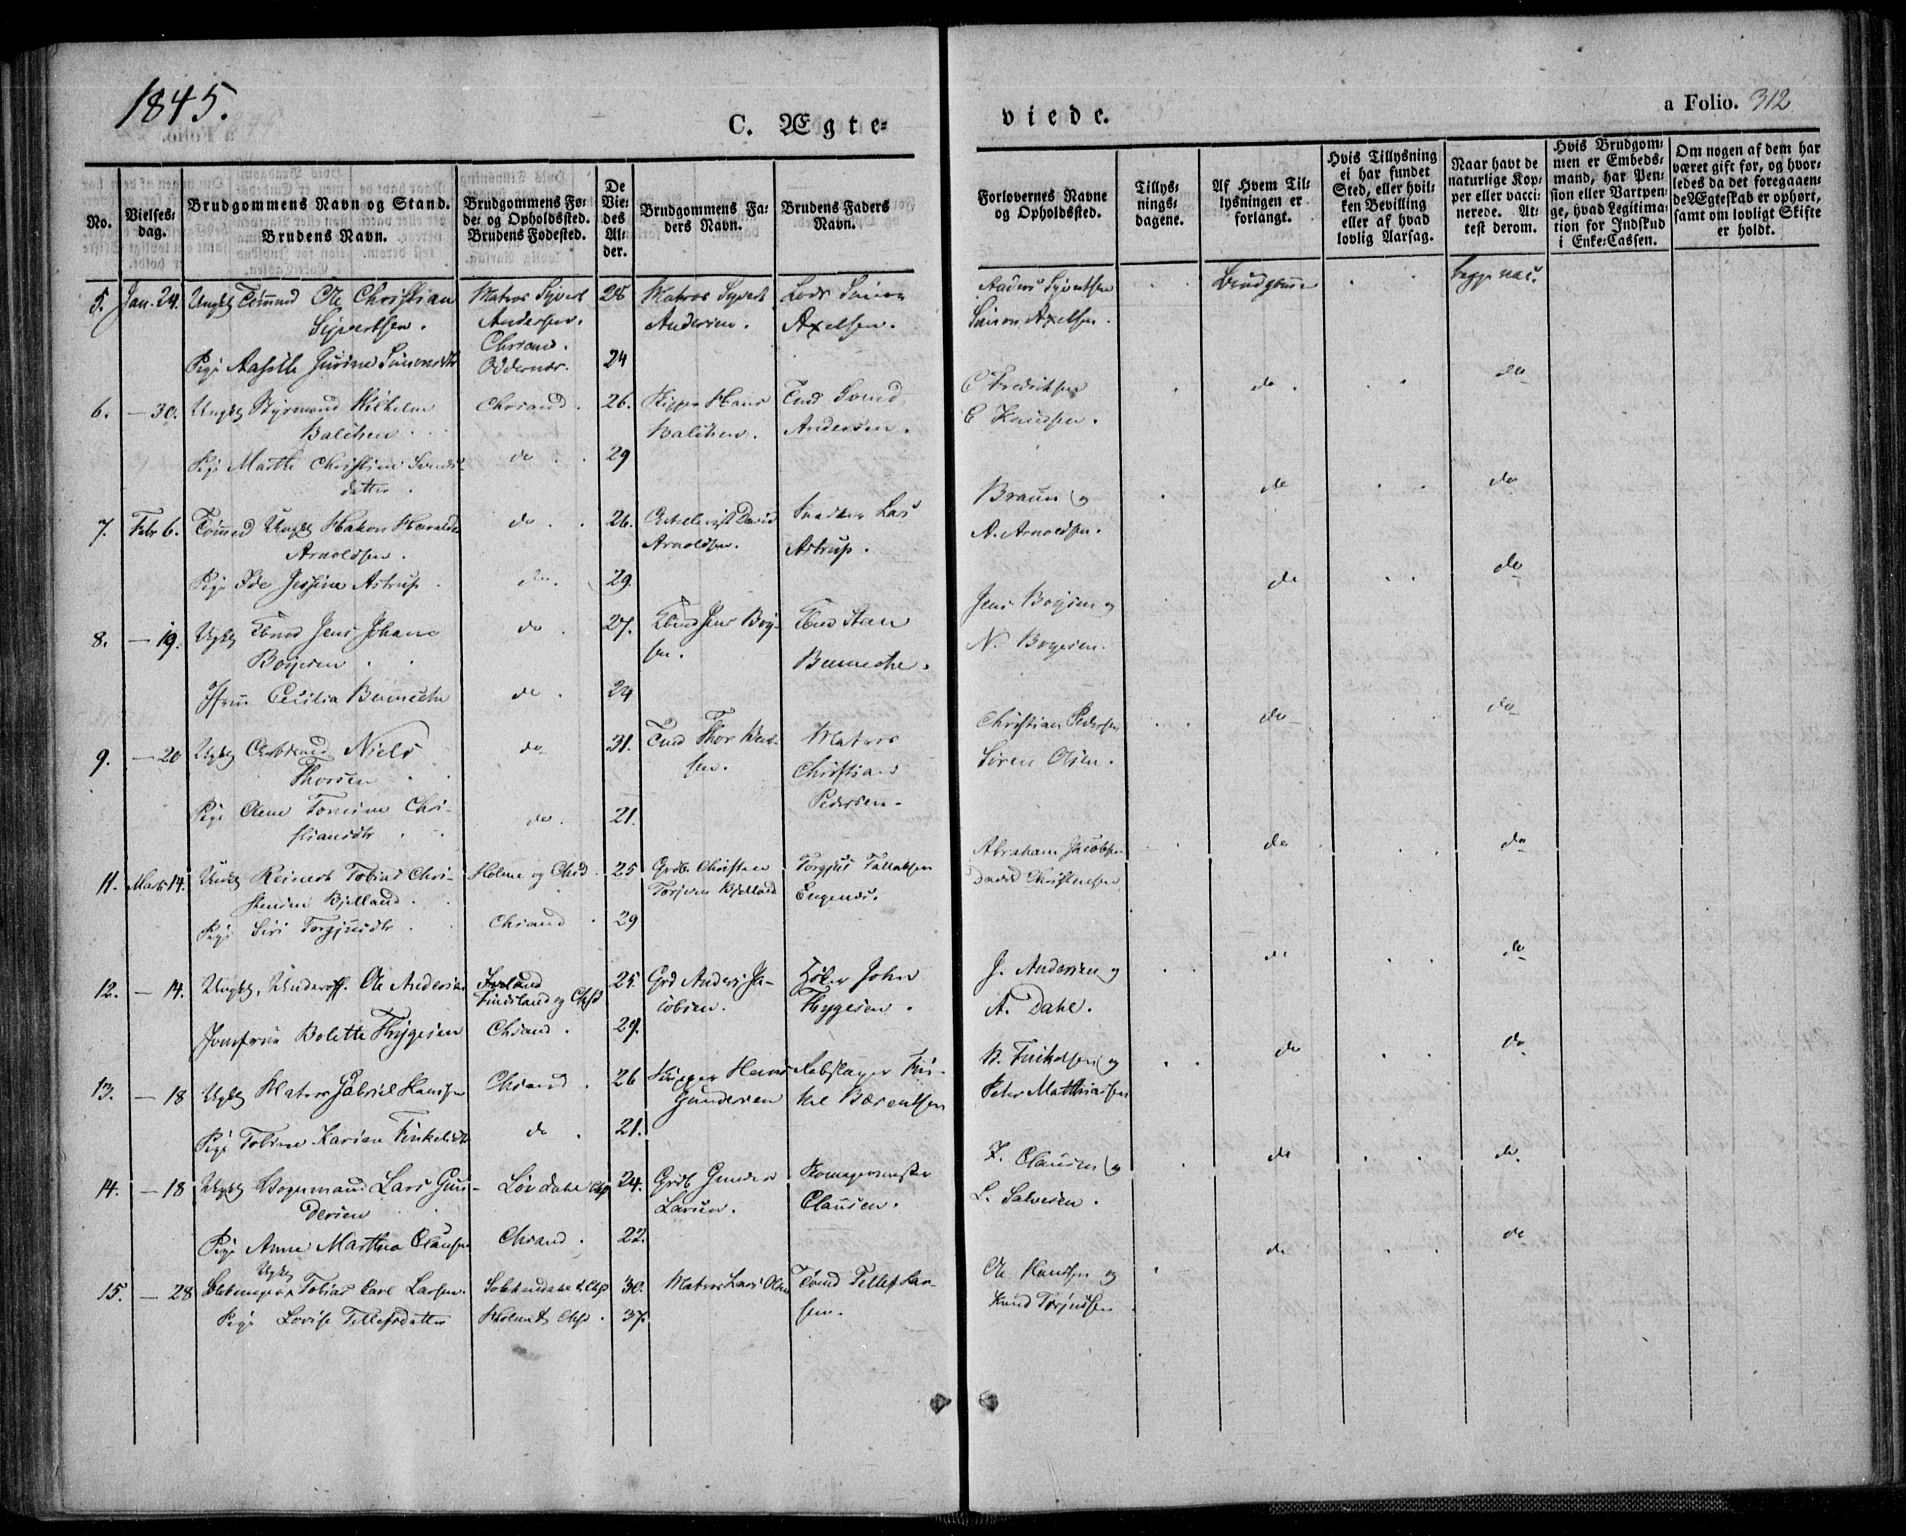 1845.
C. Ægte-
viede.
a Folio. 312
No.
Vielses-
dag.
Brudgommens Navn og Stand.
Brudens Navn.
Brudgommens Fø-
de- og Opholdssted.
Brudens Fødested.
De
Vie-
des
Al-
der.
Brudgommens Fa-
ders Navn.
Brudens Faders
Navn.
Forlovernes Navne
og Opholdssted.
Tillys-
nings-
dagene.
Af Hvem Til-
lysningen er
forlangt.
Hvis Tillysning
ei har fundet
Sted, eller hvil-
ken Bevilling
eller af hvad
lovlig Aarsag.
Naar havt de
naturlige Kop-
per eller vacci-
nerede. At-
test derom.
Hvis Brudgom-
men er Embeds-
mand, har Pen-
sion eller Vartpen-
ge, hvad Legitima-
tion for Indskud
i Enke-Cassen.
Om nogen af dem har
været gift før, og hvor-
ledes da det foregaaen-
de Ægteskab er ophørt,
samt om lovligt Skifte
er holdt.
5. Jan. 24. Ungk Tømmd Ole Christian
Sijvertsen.
Matros Syvert
Andersen.
Chrsand.
25
Matros Syvert
Andersen.
Lods Simon
Axelsen.
Anders Syvertsen
Simon Axelsen.
Brudgommen
begge vac.
Pige Aasille Gurine Simonsdtr
Oddernæs.
24
6. — 30. Ungk Styrmand Wilhelm
Balchen
Chrsand.
26.
Skipper Hans
Balchen.
Tmd Svend
Andersen.
C Fredriksen
C Knudsen.
do.
do
Pige Marthe Christine Svends-
datter.
do
29
7. Febr 6. Tømmd Ungk Hakon Harald
Arnoldsen.
do
26.
David
Arnoldsen.
Snedker Lars
Astrup.
Braun og
A. Arnoldsen.
do
do
Pige Ide Jessine Astrup.
do.
29.
8. — 19. Ugk Jens Johan
Boyesen
do
27.
Jens Boy-
sen.
Benneche.
Jens Boysen og
N. Boyesen.
do
do
Jfru Cecilia Benneche
do.
24
9. — 20 Ugk Arbdsmd Niels
Thorsen
do
31.
Tmd Thor
sen.
Matros
Christian
Pedersen.
Christian Pedersen
Søren Olsen.
do
do
Pige Olene Tomine Chri-
stiansdtr
do.
21.
11. Marts 14. Ungk Reinert Tobias Chri-
stensen Bjelland.
Holme og Chsd
25
Grdb Christen
Torjesen Bjelland
Torgjus Tallaksen
Eegenæs.
Abraham Jacobsen
David Christensen
do
do
Pige Siri Torgjusdtr
Chrsand
29
12. — 14. Ungk. Underoff. Ole Andersen
Finsland og Chsd
25.
Grd Anders Ja-
cobsen.
John
Thygesen.
J. Andersen og
A. Dahl.
do
do
Jomfrue Bolette Thygesen
Chrsand.
29.
13. — 18 Ugk Matros Gabriel Hansen
Chrsand.
26
Skipper Hans
Gundersen
Rebslager Fin-
kel Bærentsen
Peter Matthiassen
do
do
Pige Tobine Karine Finkelsdtr
do.
21.
14. — 18 Ugk Vognmand Lars Gun-
dersen
24.
Grdb Gunder
Larsen.
Clausen.
Z. Clausen og
L. Salvesen.
do
do.
Pige Anne Marthea Clausen
Chrsand.
22.
15. — 28 Ugk Tobias Carl Larsen.
30.
Matros Lars Olsen
Tømd Tellef Lar-
sen.
Ole Knudsen og
Knud Torjusen
do
do
Pige Lovise Tellefsdatter
37.